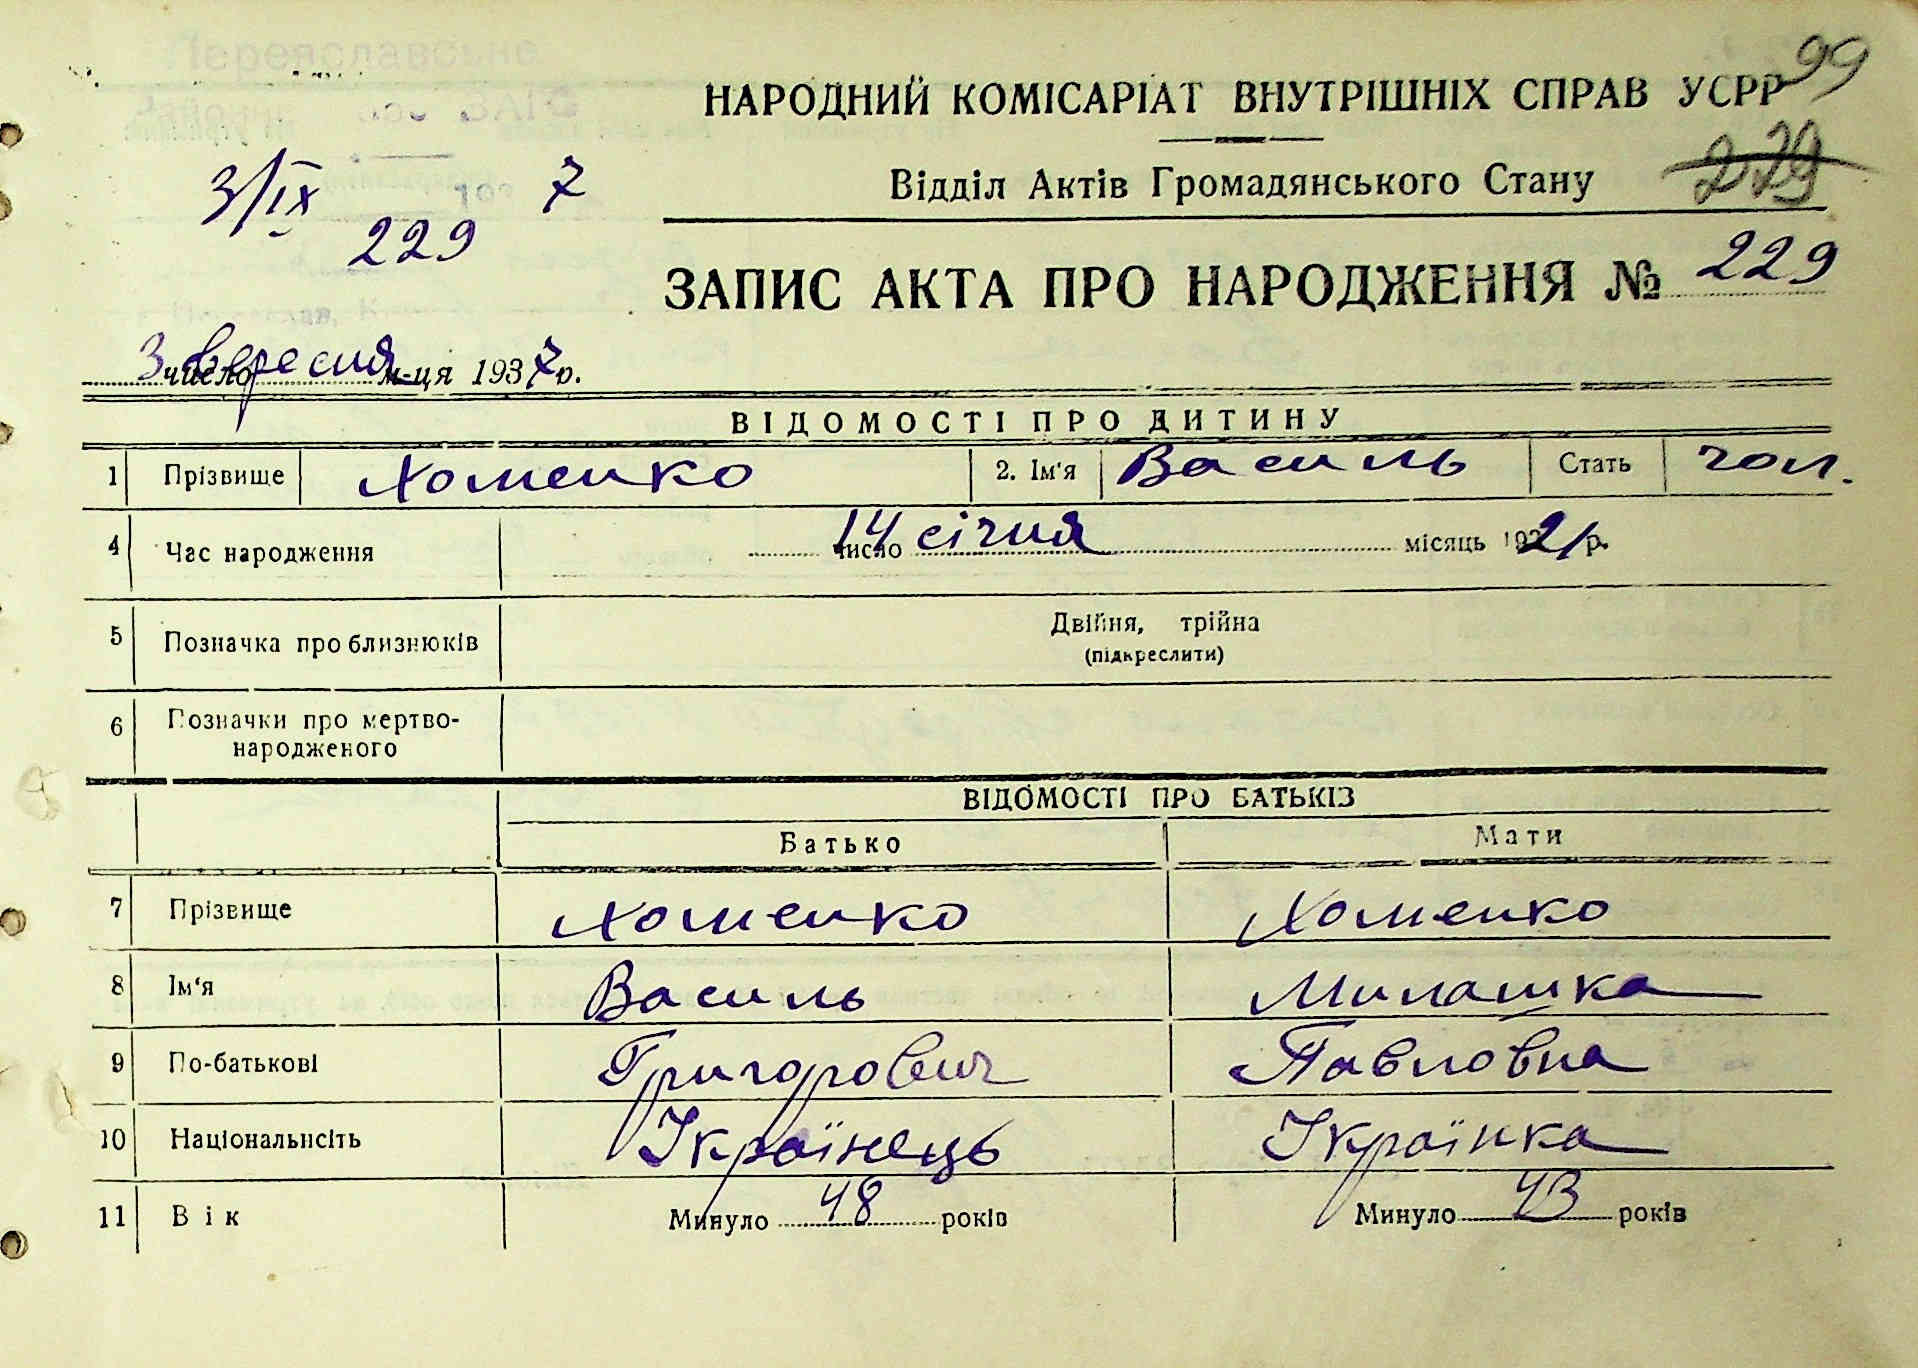 99
НАРОДНИЙ КОМІСАРІАТ ВНУТРІШНІХ СПРАВ УСРР
Відділ Актів Громадянського Стану
279
3/IX 193 7
229
ЗАПИС АКТА ПРО НАРОДЖЕННЯ № 229
3 число вересня м-ця 1937 р.
ВІДОМОСТІ ПРО ДИТИНУ
1 Прізвище Хоменко 2. Ім'я Василь Стать чол.
4 Час народження 14 число січня місяць 1921 р.
5 Позначка про близнюків Двійня, трійна
(підкреслити)
6 Позначки про мертво-
народженого
ВІДОМОСТІ ПРО БАТЬКІВ
Батько Мати
7 Прізвище Хоменко Хоменко
8 Ім'я Василь Милашка
9 По-батькові Григорович Павловна
10 Національнсіть Українець Українка
11 Вік Минуло 48 років Минуло 43 років